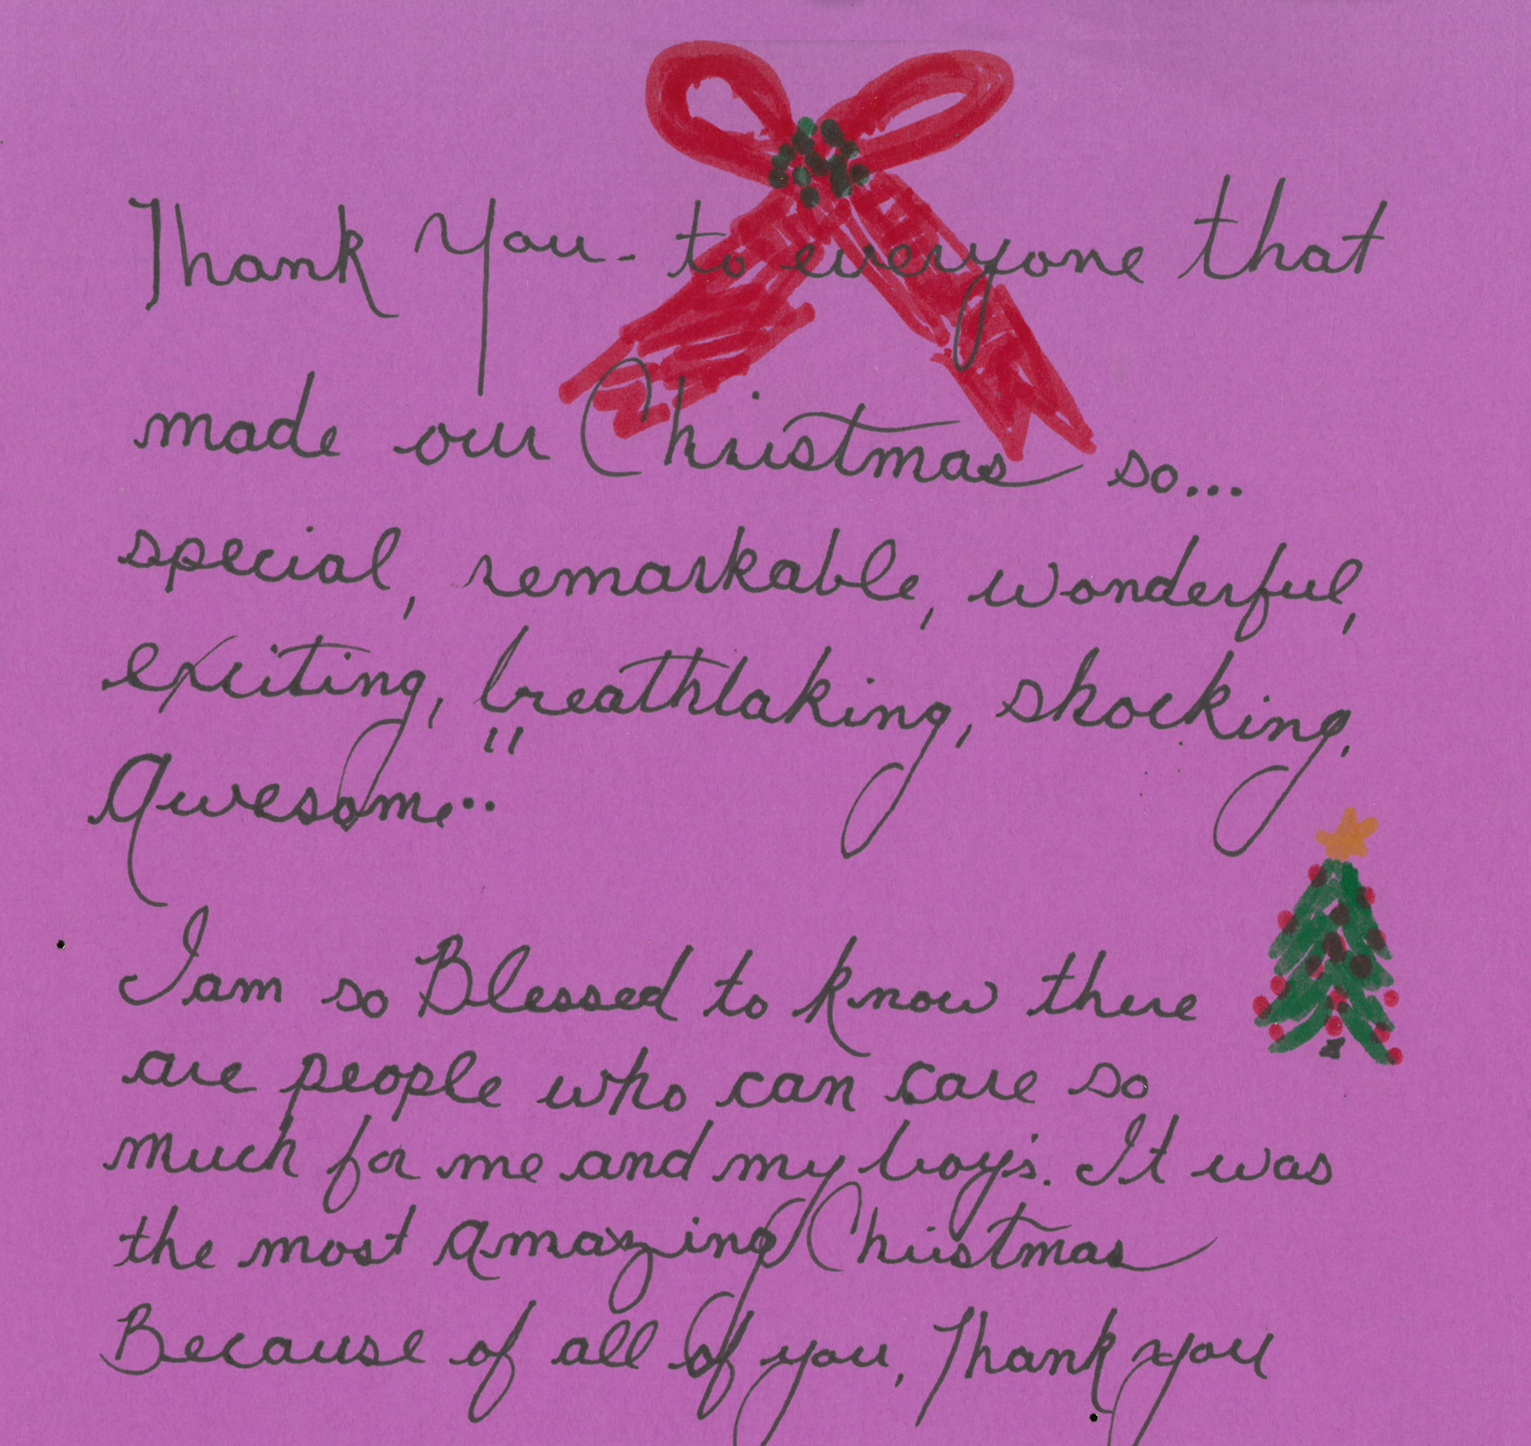 Thank You - to everyone that
made our Christmas so...
special, remarkable, wonderful,
exciting, breathtaking, shocking,
Awesome..
I am so Blessed to know there
are people who can care so
much for me and my boy's. It was
the most amazing Christmas
Because of all of you, Thank you